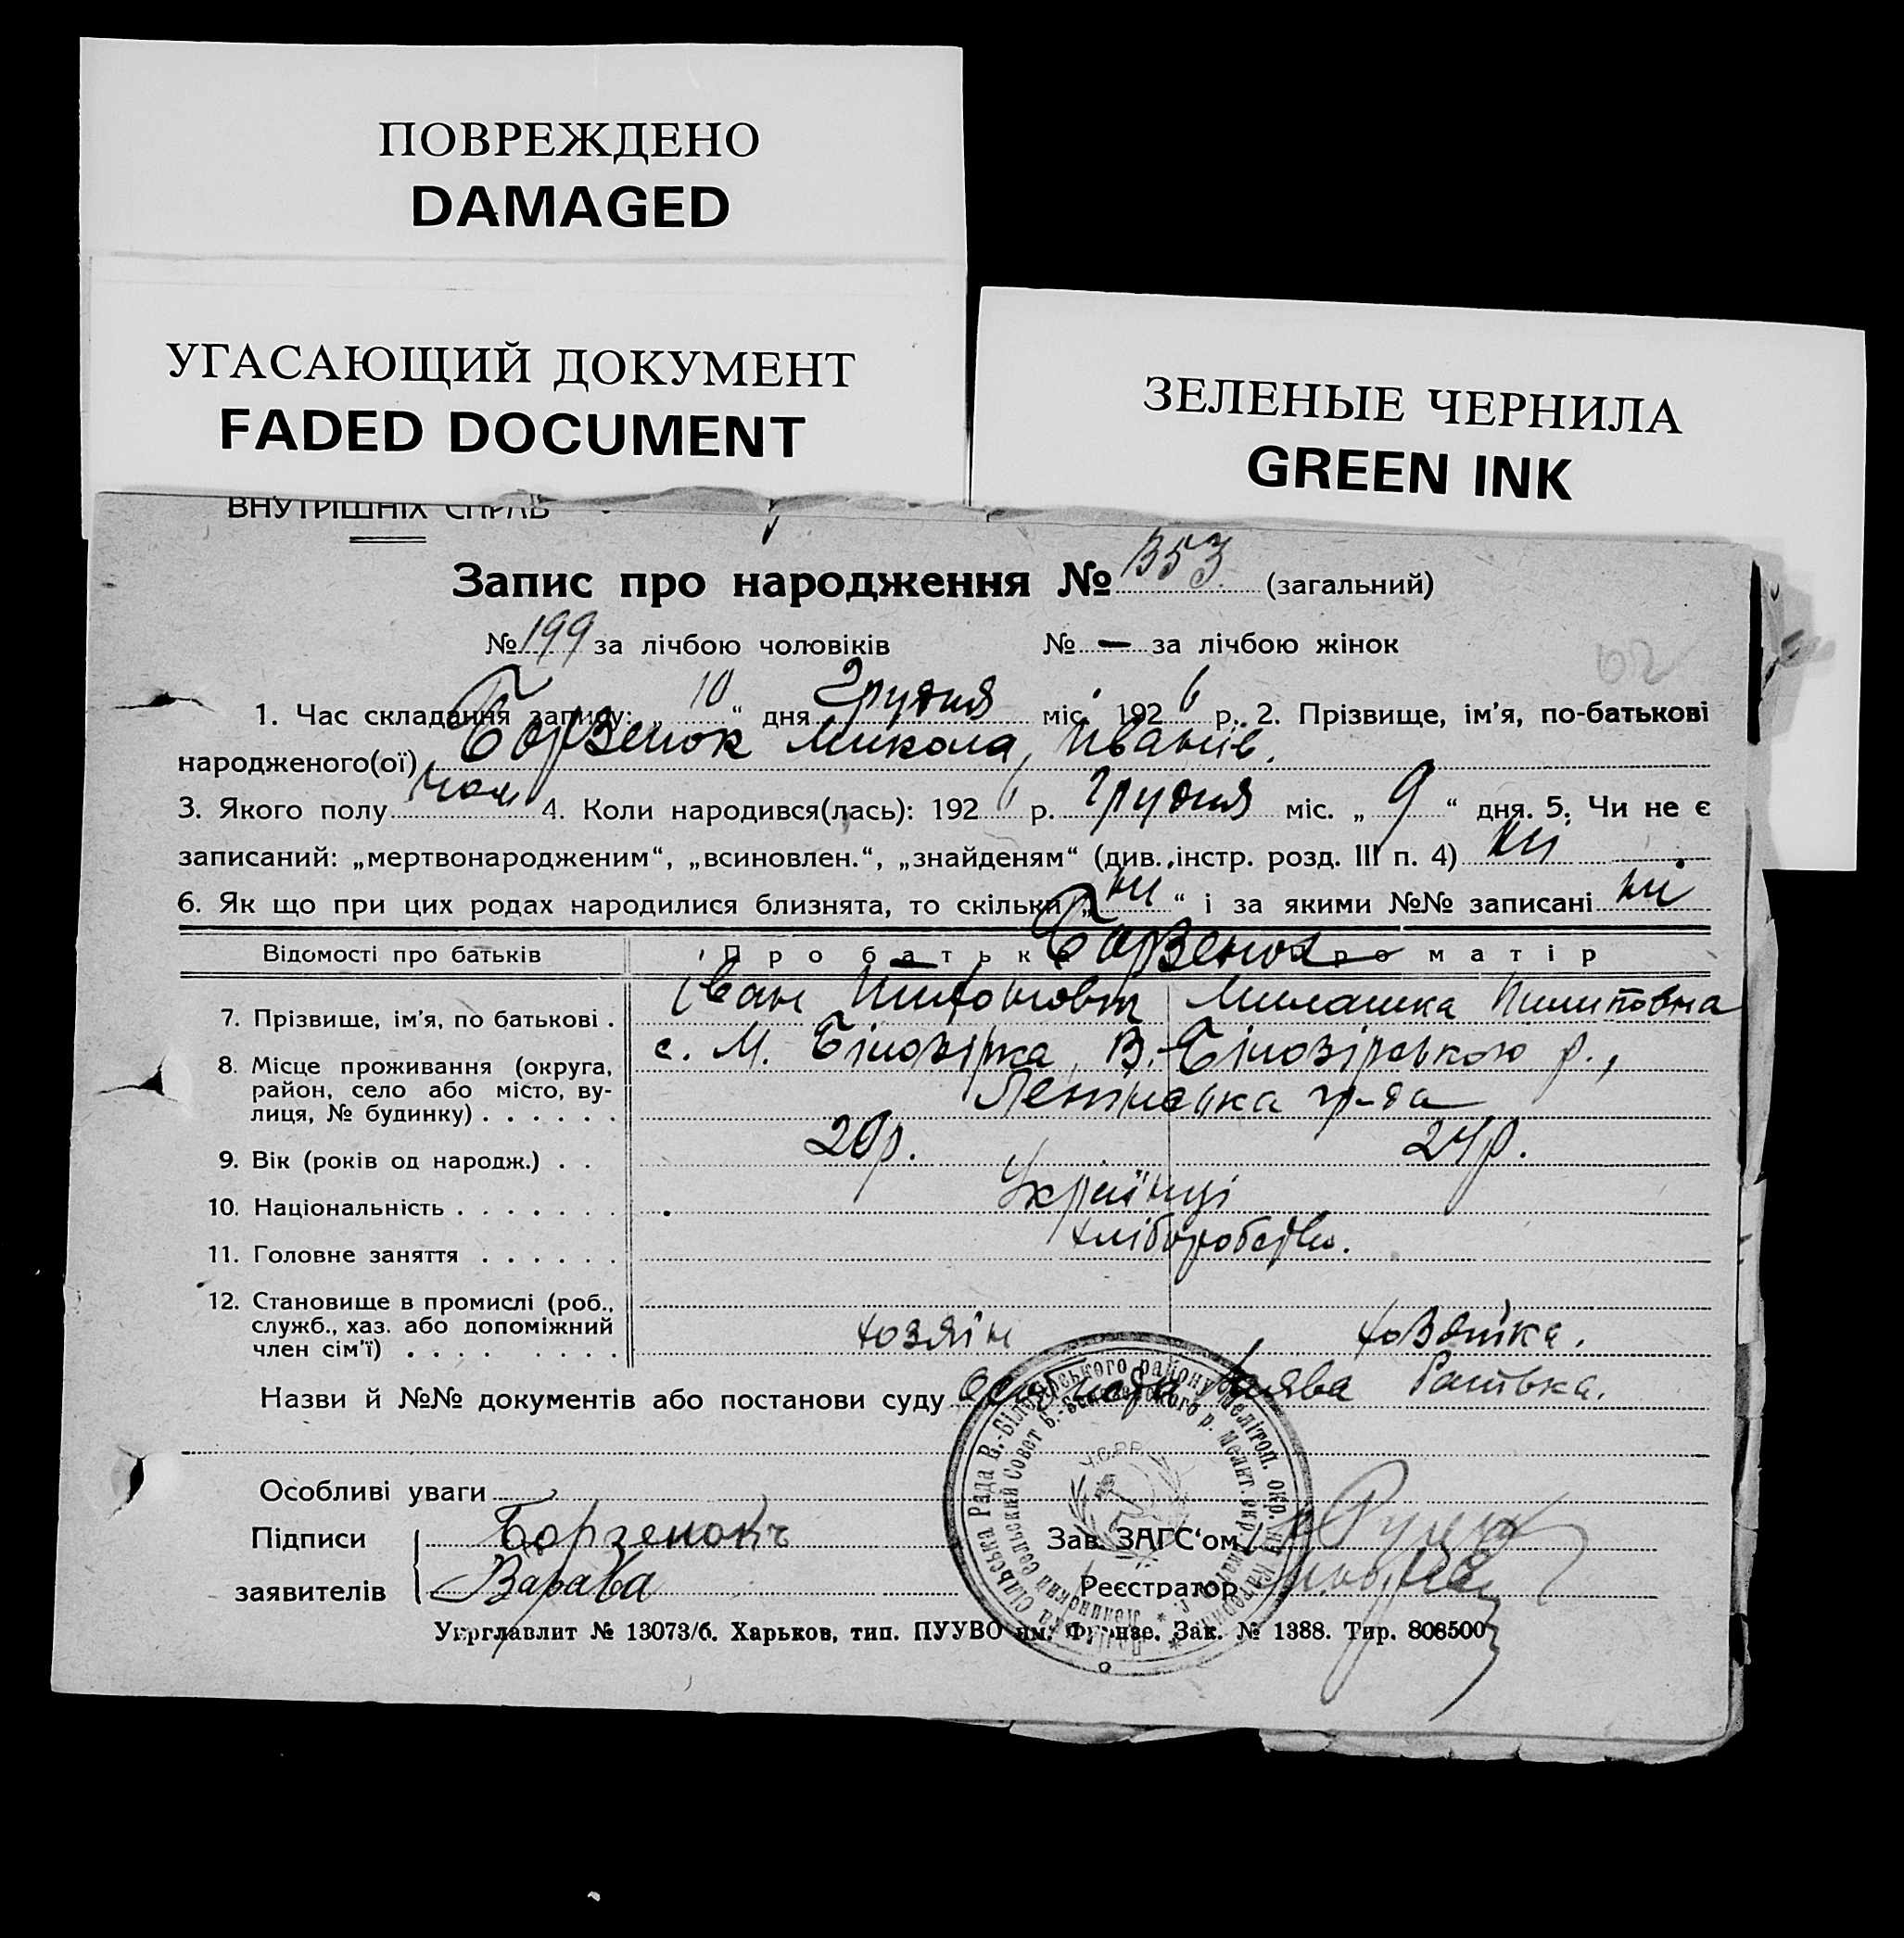 ПОВРЕЖДЕНО
DAMAGED
УГАСАЮЩИЙ ДОКУМЕНТ
FADED DOCUMENT
ЗЕЛЕНЫЕ ЧЕРНИЛА
GREEN INK
ВНУТРІШНІХ СПРАВ
Запис про народження № 353 (загальний)
№ 199 за лічбою чоловіків № — за лічбою жінок
1. Час складання запису: „ 10 “ дня Грудня міс. 192 6 р. 2. Прізвище, ім’я, по-батькові
народженого(ої) Борзенок Микола, Іванів.
3. Якого полу чол 4. Коли народився(лась): 192 6 р. Грудня міс. „ 9 “ дня. 5. Чи не є
записаний: „мертвонародженим“, „всиновлен.“, „знайденям“ (див. інстр. розд. III п. 4) ні
6. Як що при цих родах народилися близнята, то скільки „ ні “ і за якими №№ записані ні
Відомості про батьків Про батька Про матір
Борзенок
7. Прізвище, ім’я, по батькові . Іван Милашка Пилиповна
8. Місце проживання (округа, с. М. Білозірка, В.-Білозірською р.,
район, село або місто, ву-
лиця, № будинку) . . . . . .
9. Вік (років од народж.) . . 24р.
10. Національність . . . . . . . Українці
11. Головне заняття . . . . . . хліборобство.
12. Становище в промислі (роб.,
служб., хаз. або допоміжний
член сім’ї) . . . . . . . . хозяїн хозяйка.
Назви й №№ документів або постанови суду заява батька.
Особливі уваги
Підписи Борзенокъ Зав. ЗАГС‘ом
заявителів Варава Реєстратор
Укрглавлит № 13073/б. Харьков, тип. ПУУВО им. Фрунзе. Зак. № 1388. Тир. 808500
У.С.Р.Р.